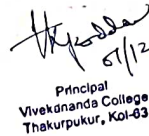 07/12
Principal
Vivekananda College
Thakurpukur, Kol-63